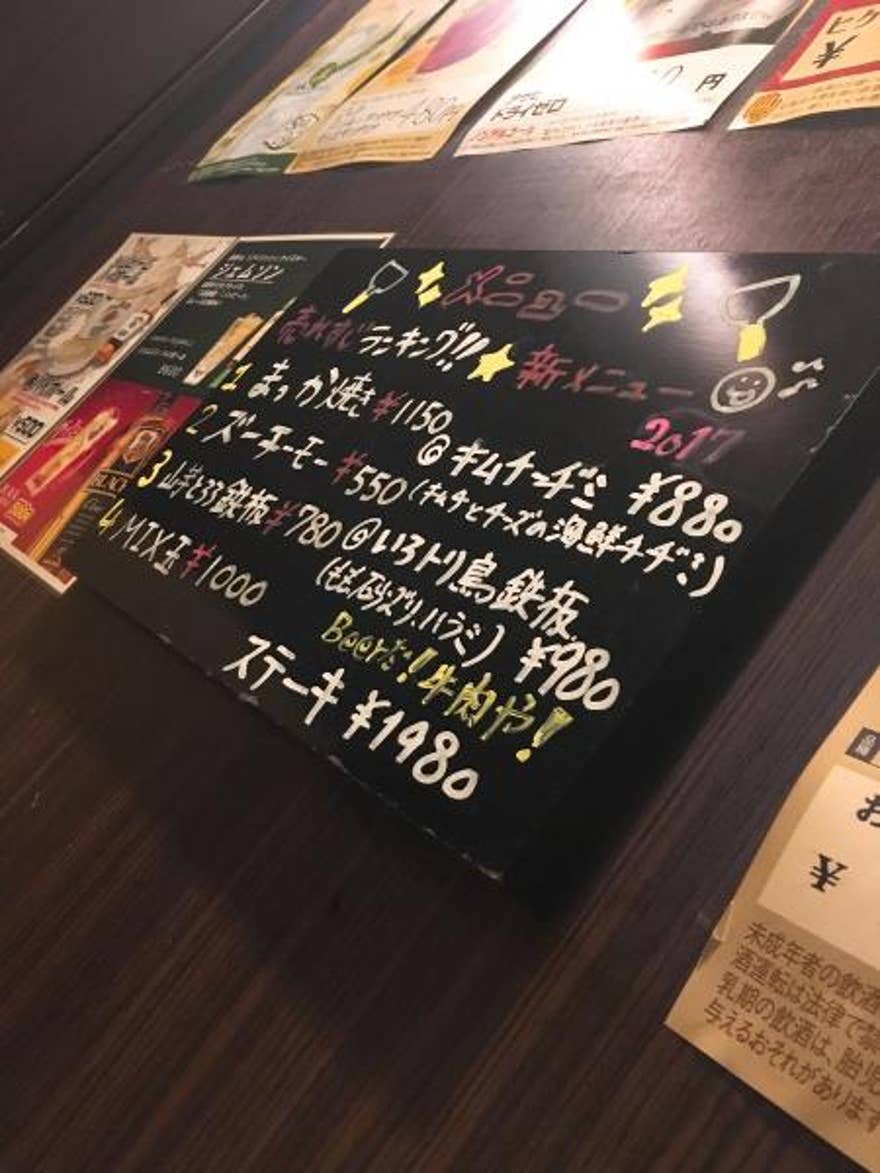 メニュー
売れすじランキング!!
1 まっか焼き ¥1150
2 ズーチーモー ¥550
3 山芋とろろ鉄板 ¥780
4 MIX玉 ¥1000
新メニュー
2017
◎キムチーヂミ ¥880
(キムチとチーズの海鮮チヂミ)
◎いろトリ鳥鉄板
(もも、砂ズリ、ハラミ) ¥980
Beerだ!牛肉や!
ステーキ ¥1980
ジェムソン
BLACK
¥500
450円
ドライゼロ
円
¥
お
¥
未成年者の飲酒
酒運転は法律で禁
乳期の飲酒は、胎児
与えるおそれがあります